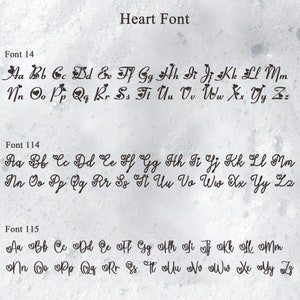 Heart Font
Font 14
Aa Bb Cc Dd Ee Ff Gg Hh Ii Jj Kk Ll Mm
Nn Oo Pp Qq Rr Ss Tt Uu Vv Ww Xx Yy Zz
Font 114
Aa Bb Cc Dd Ee Ff Gg Hh Ii Jj Kk Ll Mm
Nn Oo Pp Qq Rr Ss Tt Uu Vv Ww Xx Yy Zz
Font 115
Aa Bb Cc Dd Ee Ff Gg Hh Ii Jj Kk Ll Mm
Nn Oo Pp Qq Rr Ss Tt Uu Vv Ww Xx Yy Zz